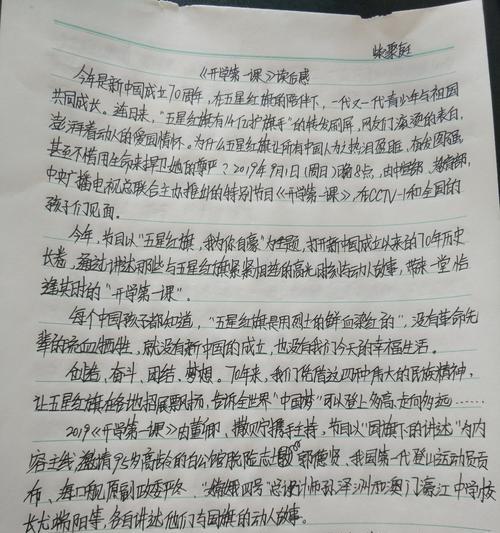 柴栗廷
《开学第一课》读后感
今年是新中国成立70周年，在五星红旗的陪伴下，一代又一代青少年与祖国
共同成长。连日来，“五星红旗有14亿护旗手”的转发刷屏，网友们滚烫的表白，
澎湃着动人的爱国情怀。为什么五星红旗让所有中国人为之热泪盈眶、奋发图强
甚至不惜用生命来捍卫她的尊严？2019年9月1日(周日)晚8点，由中宣部、教育部、
中央广播电视总联合主办推出的特别节目《开学第一课》，在CCTV-1和全国的
孩子们见面。
今年，节目以“五星红旗，我为你自豪”为主题，打开新中国成立以来的70年历史
长卷，通过讲述那些与五星红旗紧紧相连的高光时刻与动人故事，带来一堂恰
逢其时的“开学第一课”。
每个中国孩子都知道，“五星红旗是用烈士的鲜血染红的”，没有革命先
辈的流血牺牲，就没有新中国的成立，也没有我们今天的幸福生活。
创造、奋斗、团结、梦想。70年来，我们凭借这四种伟大的民族精神，
让五星红旗在各地招展飘扬，告诉全世界“中国梦”可以登上多高、走向多远……
2019《开学第一课》由董卿、撒贝宁携手主持，节目以“国旗下的讲述”为内
容主线，邀请95岁高龄的白公馆脱险志士郭德贤、我国第一代登山运动员贡
布、海口舰原副政委严冬、“嫦娥四号”总设计师孙泽洲和澳门濠江中学校
长尤端阳等，各自讲述他们与国旗的动人故事。